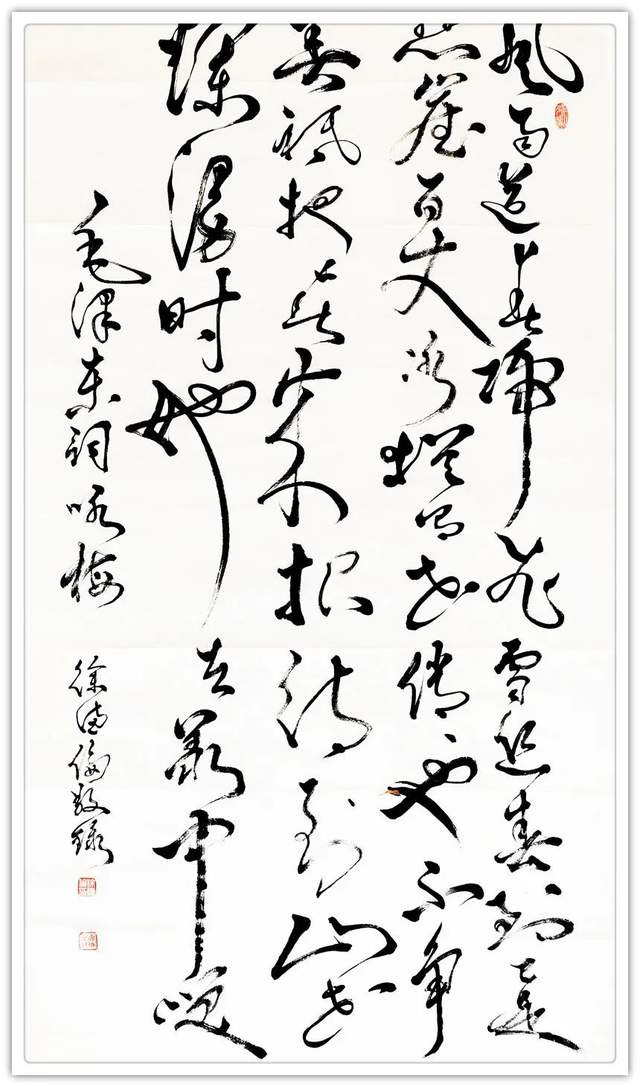 风雨送春归飞雪迎春到已是
悬崖百丈冰犹有花俏也不争
春祇把春来报待到山花
烂漫时她在丛中笑
毛泽东词咏梅
徐德敬录